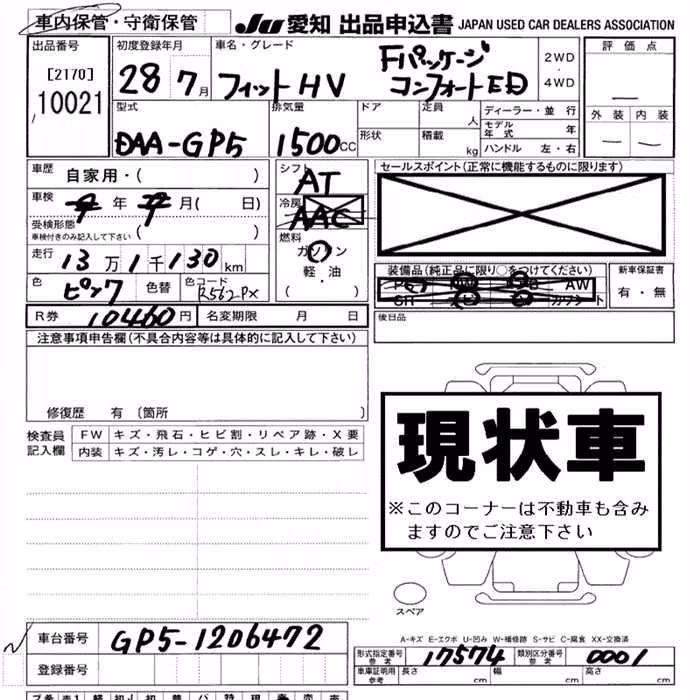 車内保管・守衛保管
JU 愛知 出品申込書 JAPAN USED CAR DEALERS ASSOCIATION
出品番号
[2170]
10021
初度登録年月
28 7月
車名・グレード
フィットHV
Fパッケージ
コンフォートED
2WD
4WD
評価点
外装 内装
型式
DAA-GP5
排気量
1500cc
ドア
定員
人
形状
積載
kg
ディーラー・並行
モデル年式 年
ハンドル 左・右
車歴 自家用・( )
車検 年 月( 日)
受検形態
車検付きのみ記入して下さい ( )
走行 13万1千130km
色 ピンク 色替 色コード R562PX
シフト
AT
冷房
AAC
燃料
ガソリン
軽・油
( )
セールスポイント(正常に機能するものに限ります)
装備品(純正品に限り○をつけてください)
AW
新車保証書
有・無
R券 10460円 名変期限 月 日
後日品
注意事項申告欄(不具合内容等は具体的に記入して下さい)
修復歴 有〔箇所 〕
検査員
記入欄
FW キズ・飛石・ヒビ割・リペア跡・X要
内装 キズ・汚レ・コゲ・穴・スレ・キレ・破レ
現状車
※このコーナーは不動車も含み
ますのでご注意下さい
スペア
A-キズ E-エクボ U-凹み W-補修跡 S-サビ C-腐食 XX-交換済
車台番号 GP5-1206472
登録番号
形式指定番号
参考
17574
類別区分番号
参考
0001
車庫証明用
参考
長さ cm 幅 cm 高さ cm